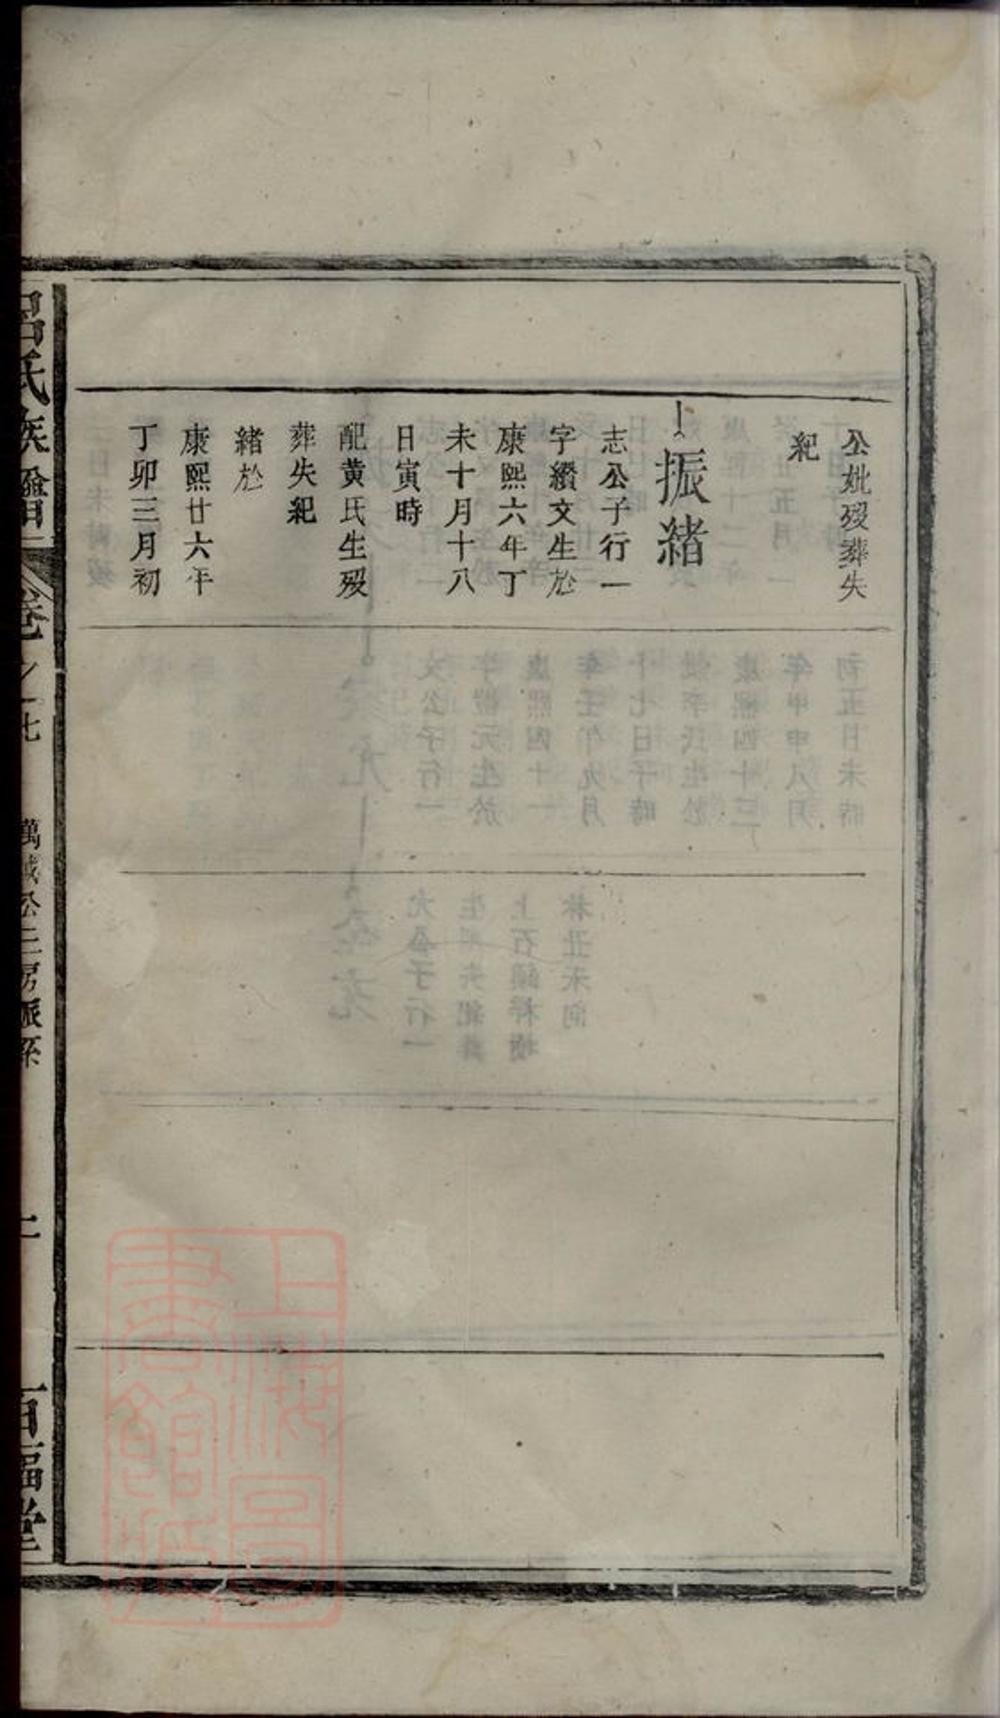 公妣歿葬失
紀
振緒
志公子行一
字纘文生扵
康熙六年丁
未十月十八
日寅時
配黄氏生歿
葬失紀
緒扵
康熙廿六年
丁卯三月初
吕氏族譜
卷之七
萬
公三房派系
百福堂
上海圖書館藏